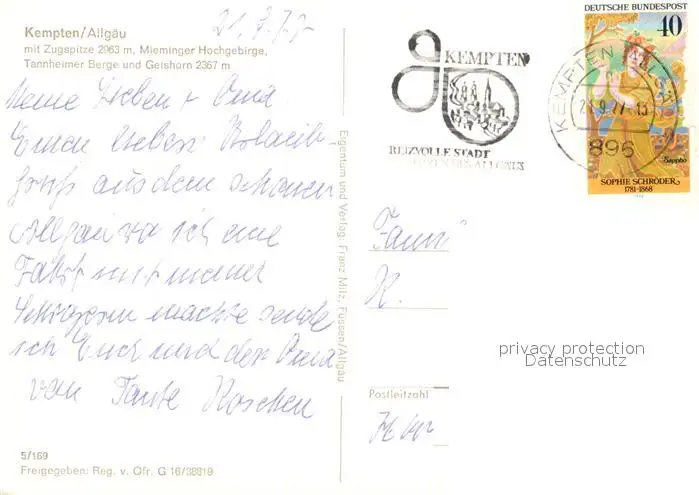 21.9.77
Kempten/Allgäu
mit Zugspitze 2963 m, Mieminger Hochgebirge,
Tannheimer Berge und Geishorn 2367 m
Meine Lieben + Oma
Euch lieben
gruß aus dem schönen
Allgäu wo ich eine
Fahrt mit meiner
machte sende
ich Euch und der Oma
von Tante Röschen
5/169
Freigegeben: Reg. v. Ofr. G 16/38819
Eigentum und Verlag, Franz Milz, Füssen/Allgäu
KEMPTEN
REIZVOLLE STADT
KEMPTEN
896
DEUTSCHE BUNDESPOST
40
Sappho
SOPHIE SCHRÖDER
1781-1868
Fami
K.
privacy protection
Datenschutz
Postleitzahl